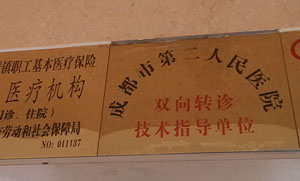 镇职工基本医疗保险
医疗机构
门诊、住院）
劳动和社会保障局
NO: 011137
成都市第二人民医院
双向转诊
技术指导单位